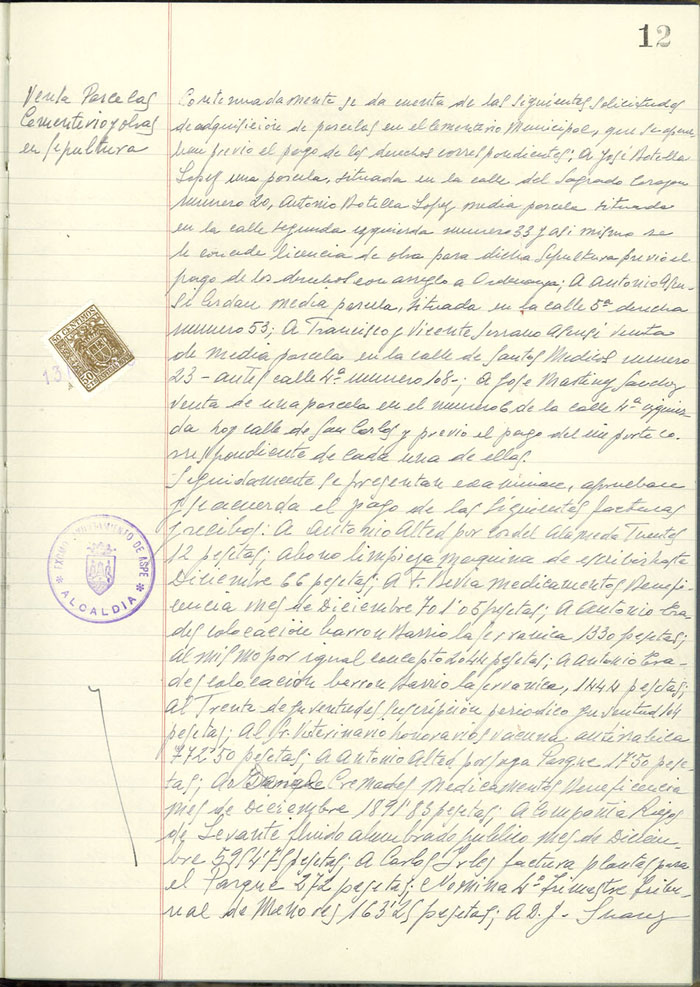 12
Venta Parcelas
Cementerio y obras
en sepultura
Continuadamente se da cuenta de las siguientes solicitudes
de adquisición de parcelas en el Cementerio Municipal, que se aprue-
ban previo el pago de los derechos correspondientes; A José Botella
Lopez una parcela, situada en la calle del Sagrado Corazon
numero 20, Antonio Botella Lopez media parcela situada
en la calle segunda izquierda numero 33 y asi mismo se
le concede licencia de obra para dicha sepultura previo el
pago de los derechos con arreglo a Ordenanza; A Antonio Asen-
si Cerdan media parcela, situada en la calle 5ª derecha
numero 53; A Francisco y Vicente Serrano Asensi venta
de media parcela en la calle de Santos Medicos numero
23 - antes calle 4ª numero 108-; A Jose Martinez Sanchez
venta de una parcela en el numero 6 de la calle 4ª izquier-
da hoy calle de San Carlos y previo el pago del importe co-
rrespondiente de cada una de ellas.
Seguidamente se presentan examinan, aprueban
y se acuerda el pago de las siguientes facturas
y recibos: A Antonio Alted por
12 pesetas; abono limpieza maquina de escribir hasta
Diciembre 66 pesetas; A F. Devia medicamentos Benefi-
cencia mes de Diciembre 701'05 pesetas; A Antonio Pra-
des colocación barron Barrio la Serranica 1330 pesetas;
al mismo por igual concepto 2044 pesetas; A Antonio Pra-
des colocación barron Barrio la Serranica, 1444 pesetas;
al Frente de Juventudes suscripción periodico Juventud 144
pesetas; Al Sr. Veterinario honorarios vacuna antirrabica
772'50 pesetas; A Antonio Alted por Parque 1750 pese-
tas; A Cremades medicamentos Beneficencia
mes de Diciembre 1891'83 pesetas; A Compañia Riegos
de Levante fluido alumbrado público mes de Diciem-
bre 59,475 pesetas; A Carlos factura plantas para
el Parque 272 pesetas; Nomina 4º trimestre Tribu-
nal de Menores 163'25 pesetas; A D. J. Suarez
50 CENTIMOS
50
13
EXCMO. AYUNTAMIENTO DE ASPE
ALCALDIA